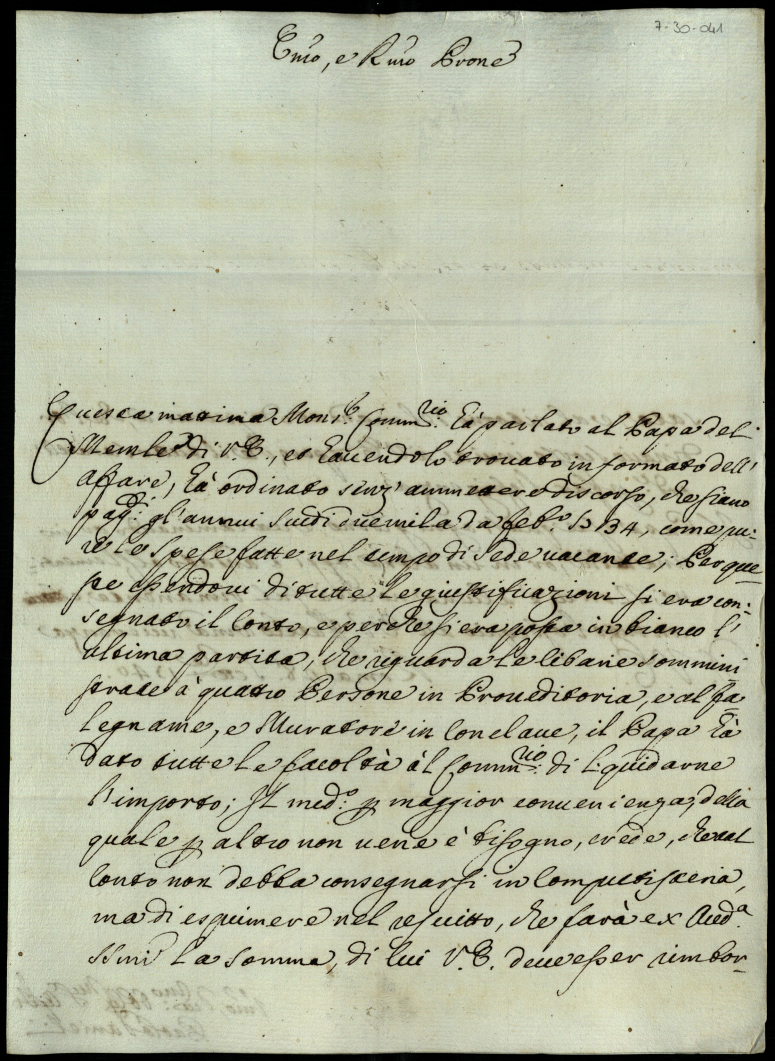 7-30-041
Emo, e Rmo Prone
Questa matina Mons.r Comm.rio hà parlato al Papa del
Memle di V.E., et havendolo trovato informato dell'
affare, hà ordinato senz' ammetere discorso, che siano
pag.i gl'annui scudi duemila da feb.o 1734, come pu:
re le spese fatte nel tempo di Sede vacante; Per que
ste essendovi di tutte le giustificazioni si era con:
segnato il Conto, e perche si era posta in bianco l'
ultima partita, che riguarda le libarie sommini
strate à quattro Persone in Proveditoria, e al fa
legname, e Muratore in Conclave, il Papa hà
dato tutte le facoltà al Comm.rio di liquidarne
l'importo; Il med.o p maggior convenienza, della
quale p altro non vene è bisogno, crede, che tal
Conto non debba consegnarsi in Computisteria,
ma di esprimere nel rescritto, che farà ex Aud.a
SSmi la somma, di cui V.E. deve esser rimbor-